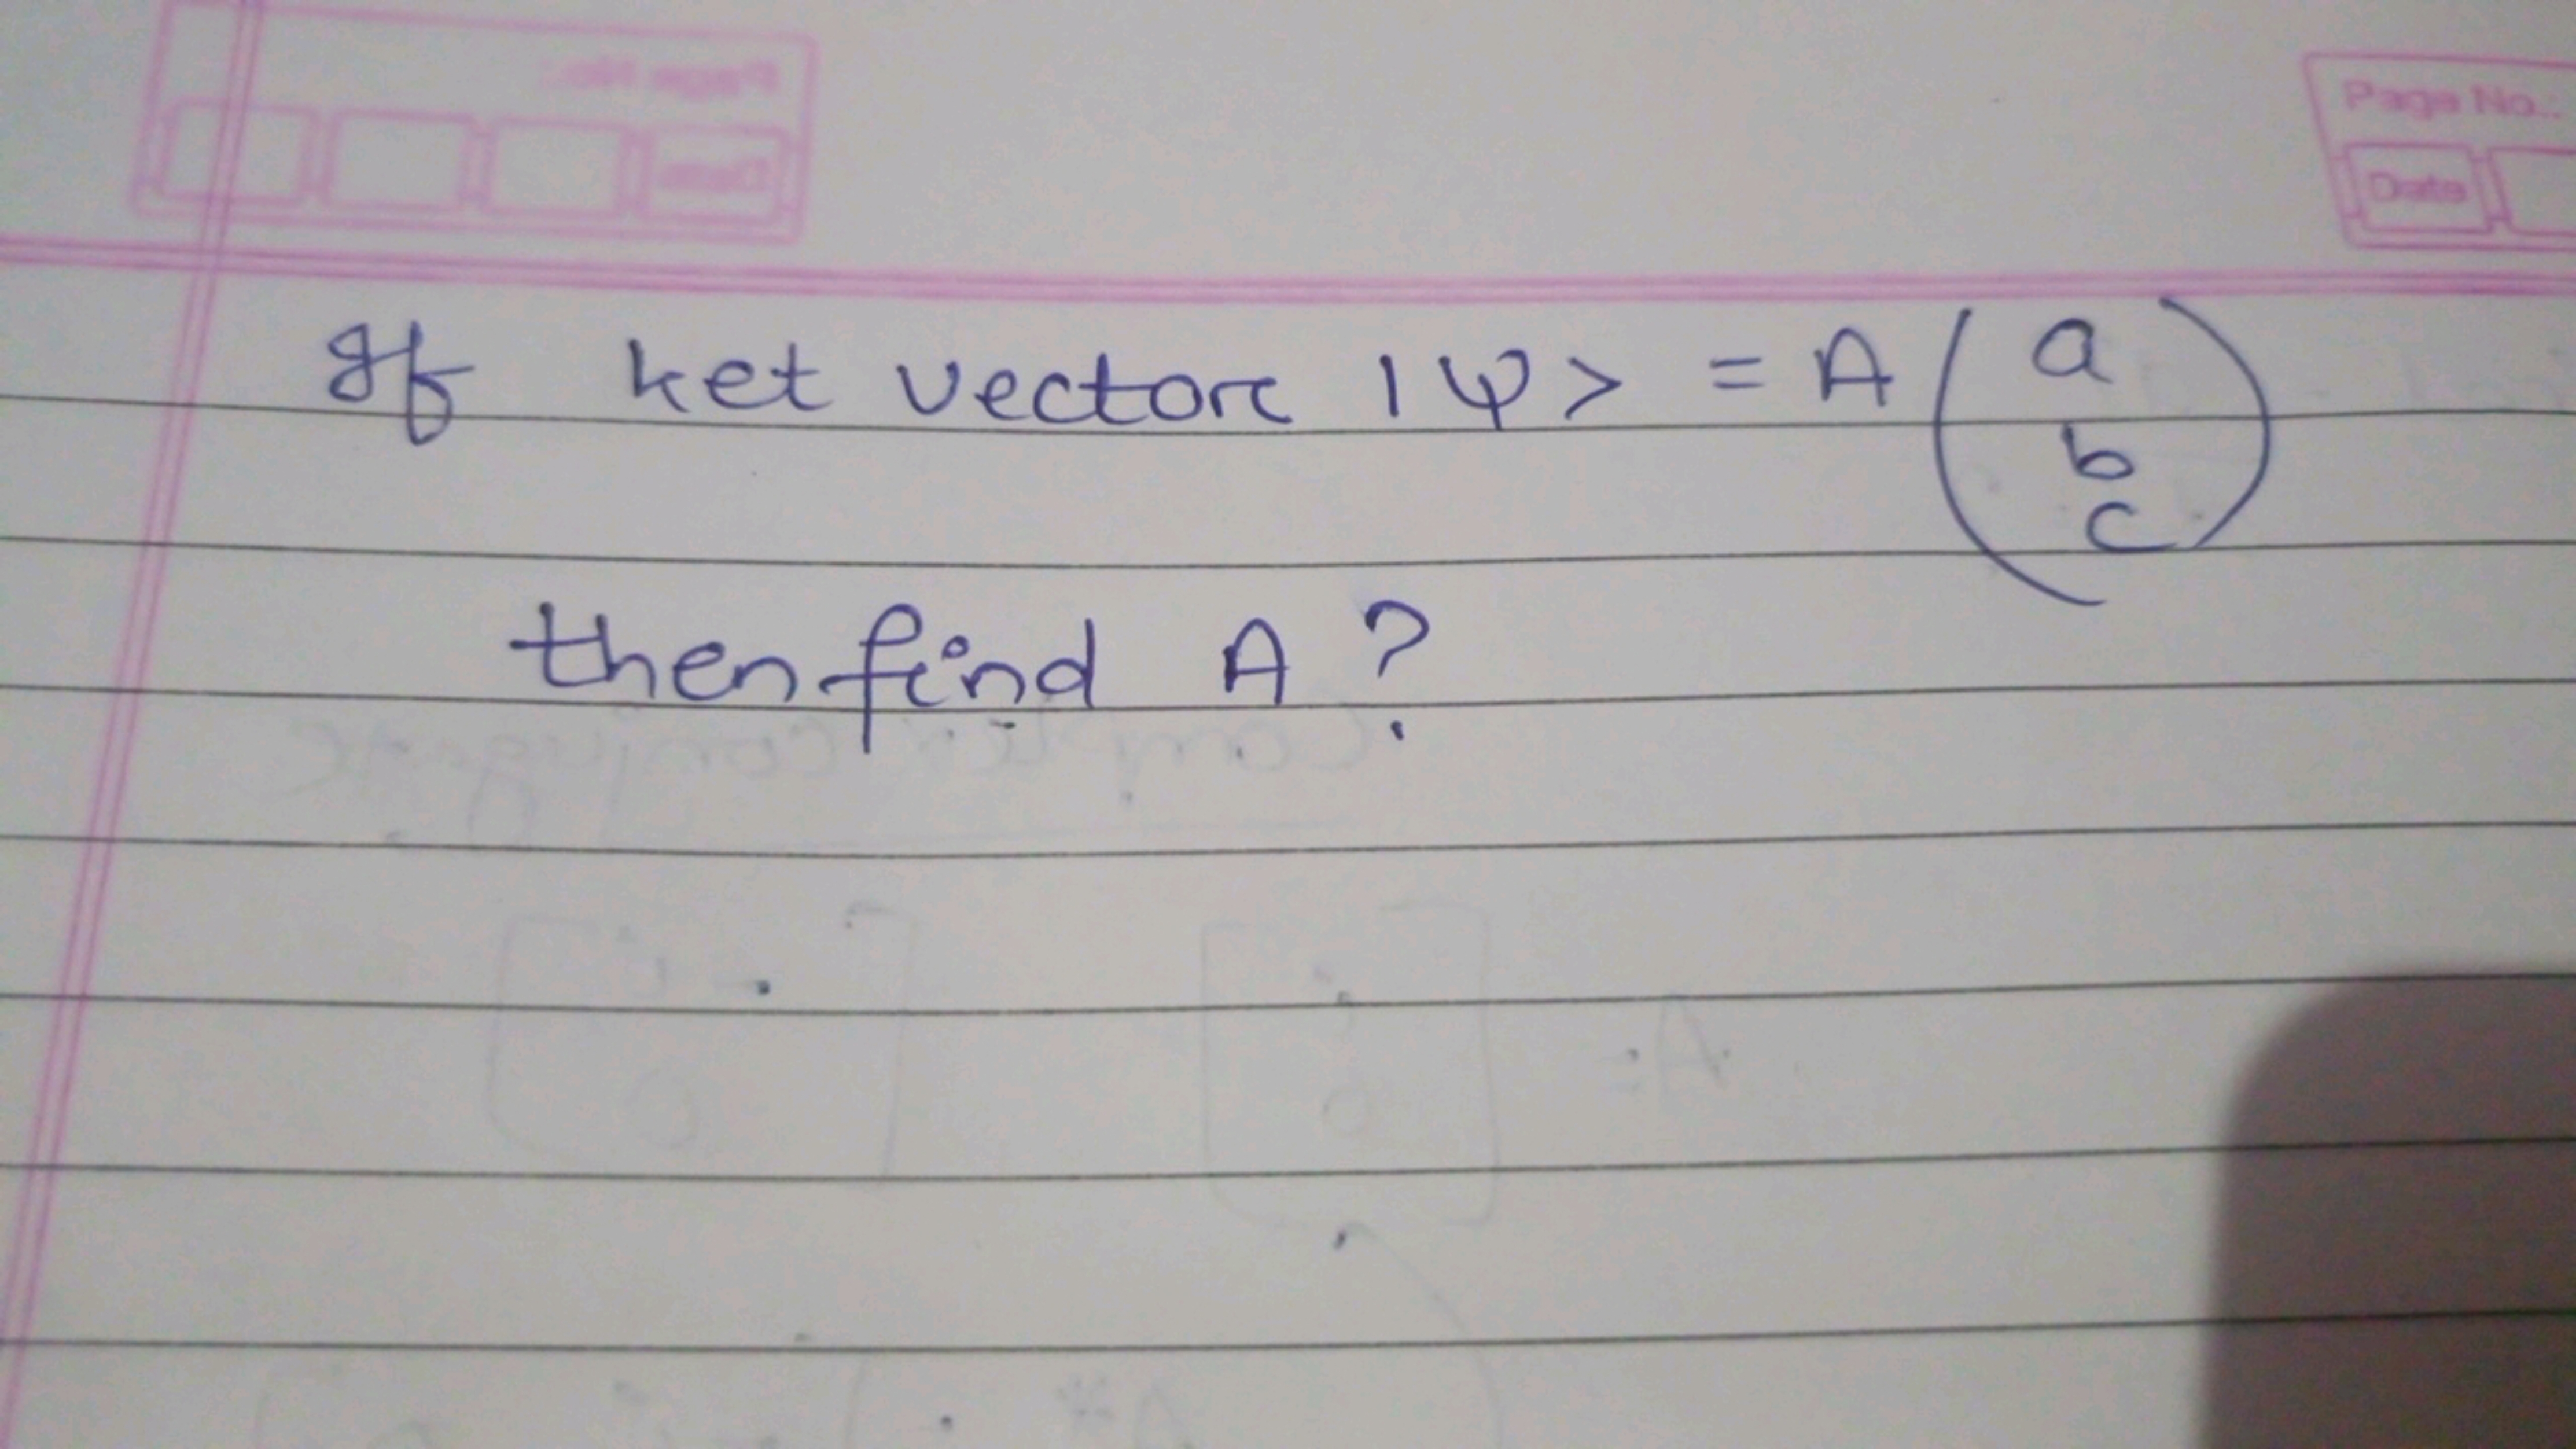 Page No..
Date
If ket vector |ψ> = A ( a
b
c )
then find A ?